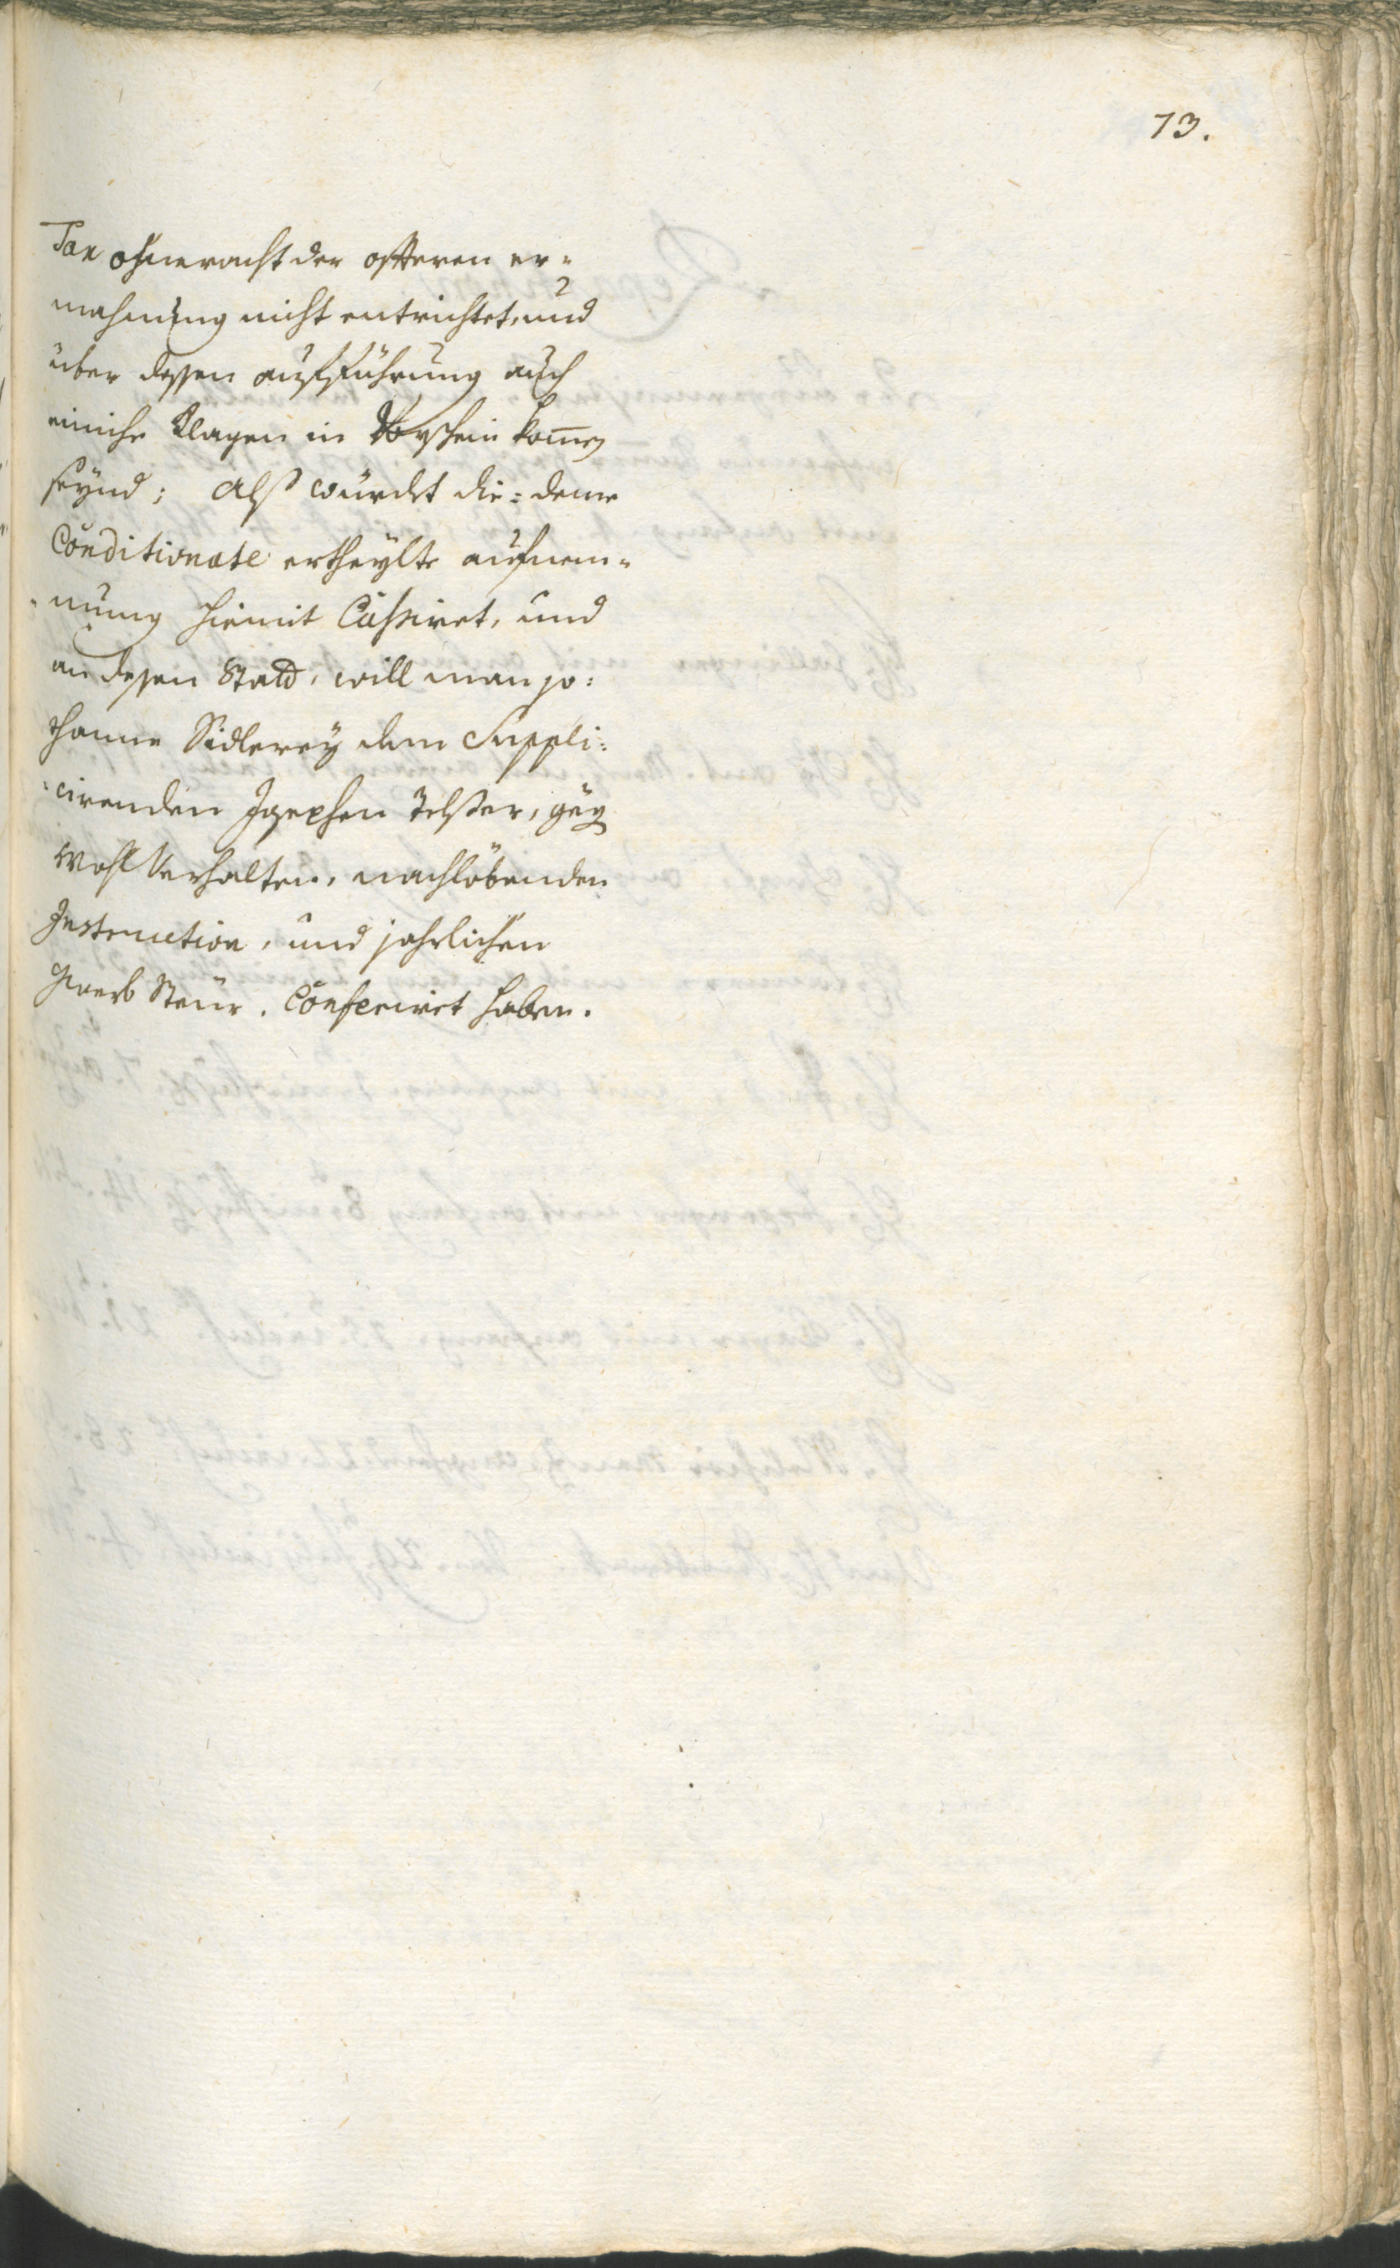 73.
Tax ohneracht der öffteren er=
mahnung nicht entrichtet, und
über dessen aufführung auch
einiche Klagen in Vorschein kom̄en
seynd; Alß würdet die= deme
Conditionate ertheylte aufnem=
=nung hiemit Cassiret, und
an dessen Statt, will man so=
thanne Sidlerey dem Suppli=
=cirenden Josephen, gegen
wohl Verhalten, nachlöbenden
Instruction, und jahrlichen
Gwerb Steür, Conferiret haben.